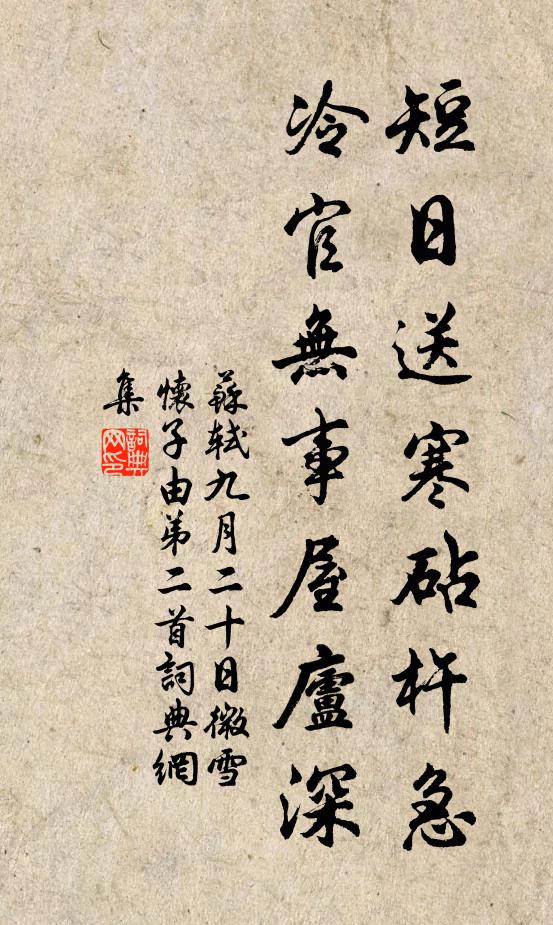 短日送寒砧杵急
冷官無事屋廬深
蘇軾九月二十日微雪
懷子由弟二首詞典網
集
詞典網印